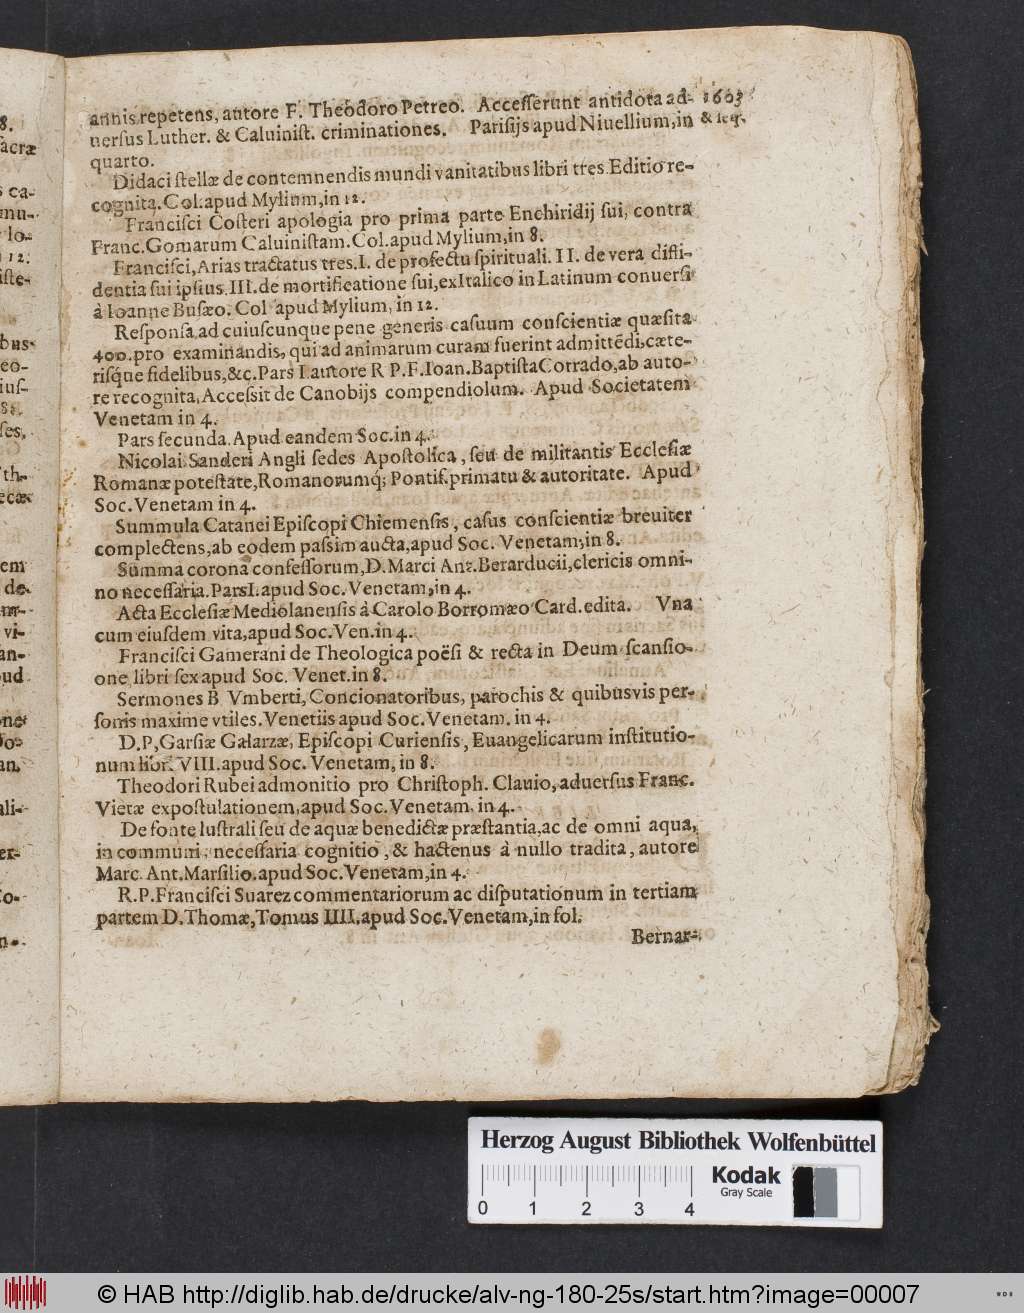 annis repetens, autore F. Theodoro Petreo. Accesserunt antidota ad- 1603
uersus Luther. & Caluinist. criminationes. Parisijs apud Niuellium, in & seq.
quarto.
Didaci stellæ de contemnendis mundi vanitatibus libri tres. Editio re-
cognita. Col. apud Mylium, in 12.
Francisci Costeri apologia pro prima parte Enchiridij sui, contra
Franc. Gomarum Caluinistam. Col. apud Mylium, in 8.
Francisci, Arias tractatus tres. I. de profectu spirituali. II. de vera diffi-
dentia sui ipsius. III. de mortificatione sui, ex Italico in Latinum conuersi
à Ioanne Busæo. Col apud Mylium, in 12.
Responsa ad cuiuscunque pene generis casuum conscientiæ quæsita
400. pro examinandis, qui ad animarum curam fuerint admittēdi, cæte-
risq́ue fidelibus, &c. Pars I. autore R P. F. Ioan. Baptista Corrado, ab auto-
re recognita, Accessit de Canobijs compendiolum. Apud Societatem
Venetam in 4.
Pars secunda. Apud eandem Soc. in 4.
Nicolai Sanderi Angli sedes Apostolica, seu de militantis Ecclesiæ
Romanæ potestate, Romanorumq́; Pontif. primatu & autoritate. Apud
Soc. Venetam in 4.
Summula Catanei Episcopi Chiemensis, casus conscientiæ breuiter
complectens, ab eodem passim aucta, apud Soc. Venetam, in 8.
Summa corona confessorum, D. Marci Ant. Berarducii, clericis omni-
no necessaria. Pars I. apud Soc. Venetam, in 4.
Acta Ecclesiæ Mediolanensis à Carolo Borromæo Card. edita. Vna
cum eiusdem vita, apud Soc. Ven. in 4.
Francisci Gamerani de Theologica poësi & recta in Deum scansio-
one libri sex apud Soc. Venet. in 8.
Sermones B Vmberti, Concionatoribus, parochis & quibusvis per-
sonis maxime vtiles. Venetiis apud Soc. Venetam. in 4.
D. P, Garsiæ Galarzæ, Episcopi Curiensis, Euangelicarum institutio-
num libri VIII. apud Soc. Venetam, in 8.
Theodori Rubei admonitio pro Christoph. Clauio, aduersus Franc.
Vietæ expostulationem, apud Soc. Venetam. in 4.
De fonte lustrali seu de aquæ benedictæ præstantia, ac de omni aqua,
in communi, necessaria cognitio, & hactenus à nullo tradita, autore
Marc. Ant. Marsilio. apud Soc. Venetam, in 4.
R. P. Francisci Suarez commentariorum ac disputationum in tertiam
partem D. Thomæ, Tomus IIII. apud Soc. Venetam, in fol.
Bernar-
Herzog August Bibliothek Wolfenbüttel
0 1 2 3 4
Kodak
Gray Scale
© HAB http://diglib.hab.de/drucke/alv-ng-180-25s/start.htm?image=00007